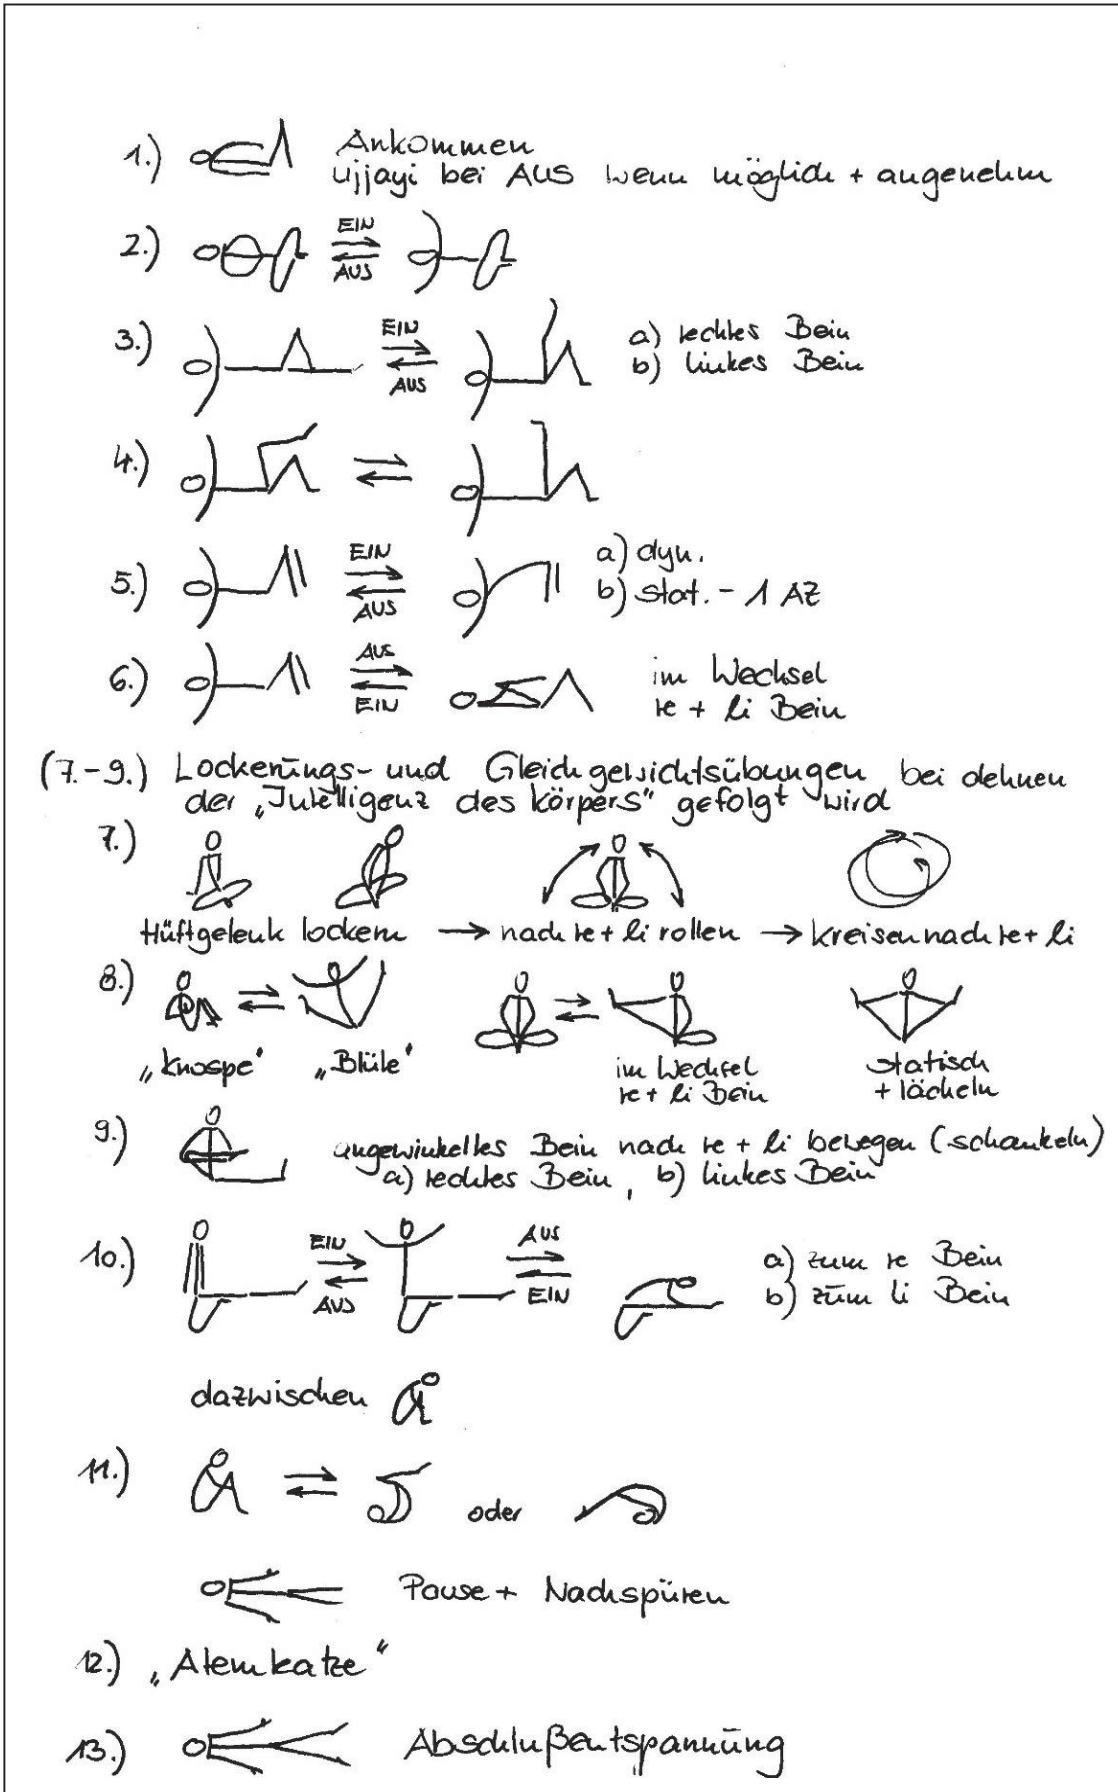 1.) Ankommen
ujjayi bei AUS wenn möglich + angenehm
2.) EIN
AUS
3.) EIN
AUS
a) rechtes Bein
b) linkes Bein
4.)
5.) EIN
AUS
a) dyn.
b) stat. - 1 AZ
6.) AUS
EIN
im Wechsel
re + li Bein
(7.-9.) Lockerungs- und Gleichgewichtsübungen bei dehnen
der „Intelligenz des Körpers" gefolgt wird
7.)
Hüftgelenk lockern → nach re + li rollen → kreisen nach re + li
8.)
„Knospe" „Blüte"
im Wechsel
re + li Bein
statisch
+ lächeln
9.) angewinkeltes Bein nach re + li bewegen (schaukeln)
a) rechtes Bein, b) linkes Bein
10.) EIN
AUS
AUS
EIN
a) zum re Bein
b) zum li Bein
dazwischen
11.) oder
Pause + Nachspüren
12.) „Atemkatze"
13.) Abschlußentspannung